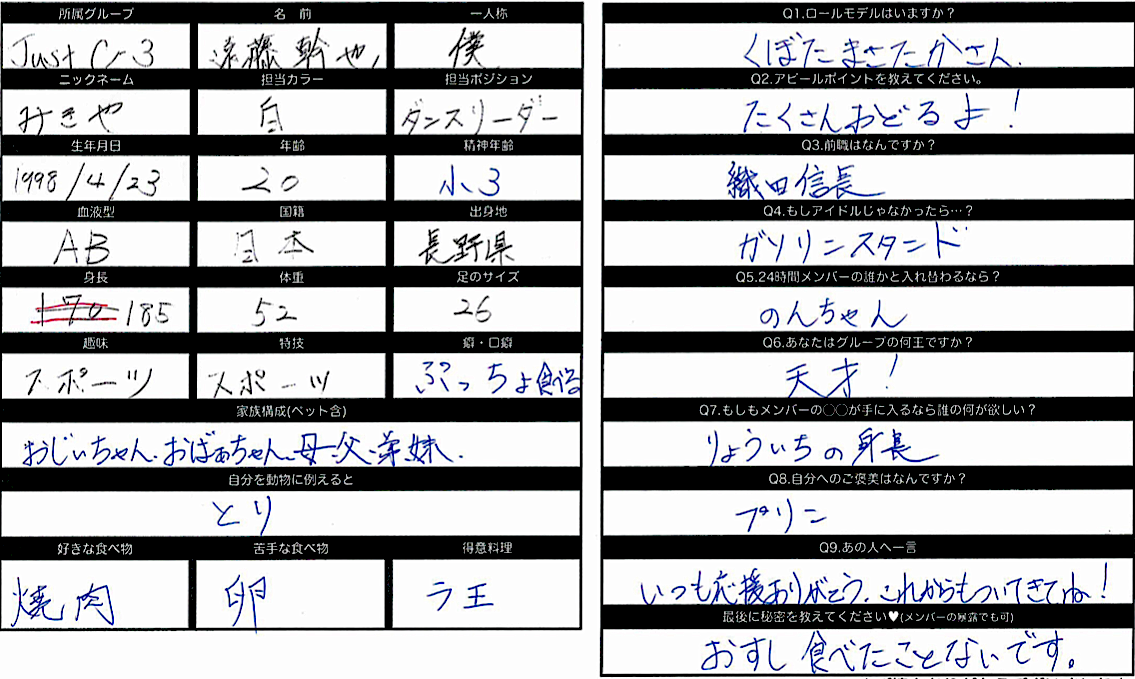 所属グループ 名 前 一人称
Just Cr 3 遠藤幹也 僕
ニックネーム 担当カラー 担当ポジション
みきや 白 ダンスリーダー
生年月日 年齢 精神年齢
1998/4/23 20 小3
血液型 国籍 出身地
AB 日本 長野県
身長 体重 足のサイズ
170 185 52 26
趣味 特技 癖・口癖
スポーツ スポーツ ぷっちょ食べる
家族構成(ペット含)
おじいちゃん、おばぁちゃん、母、父、弟、妹、
自分を動物に例えると
とり
好きな食べ物 苦手な食べ物 得意料理
焼肉 卵 ラ王
Q1.ロールモデルはいますか？
くぼたまさたかさん、
Q2.アピールポイントを教えてください。
たくさんおどるよ！
Q3.前職はなんですか？
織田信長
Q4.もしアイドルじゃなかったら…？
ガソリンスタンド
Q5.24時間メンバーの誰かと入れ替わるなら？
のんちゃん
Q6.あなたはグループの何王ですか？
天才！
Q7.もしもメンバーの○○が手に入るなら誰の何が欲しい？
りょういちの身長
Q8.自分へのご褒美はなんですか？
プリン
Q9.あの人へ一言
いつも応援ありがとう、これからもついてきてね！
最後に秘密を教えてください♥(メンバーの暴露でも可)
おすし食べたことないです。